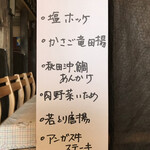 • 塩ホッケ
• かさご竜田揚
• 秋田沖鯛
あんかけ
• 肉野菜いため
• 若どり唐揚
• アンガス牛
ステーキ